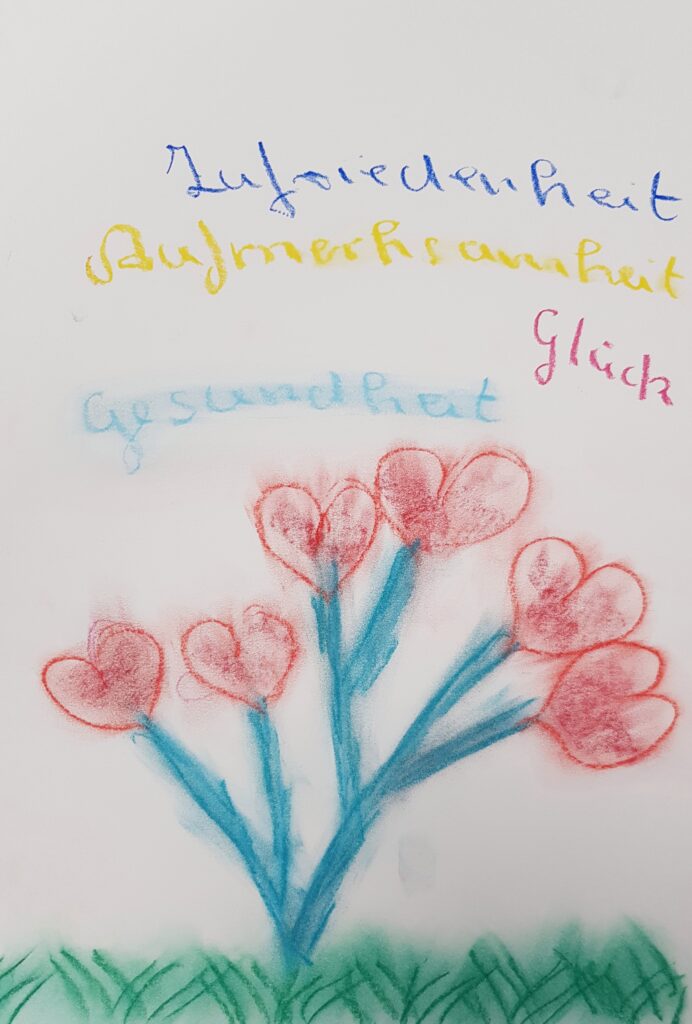 Zufriedenheit
Aufmerksamkeit
Glück
Gesundheit